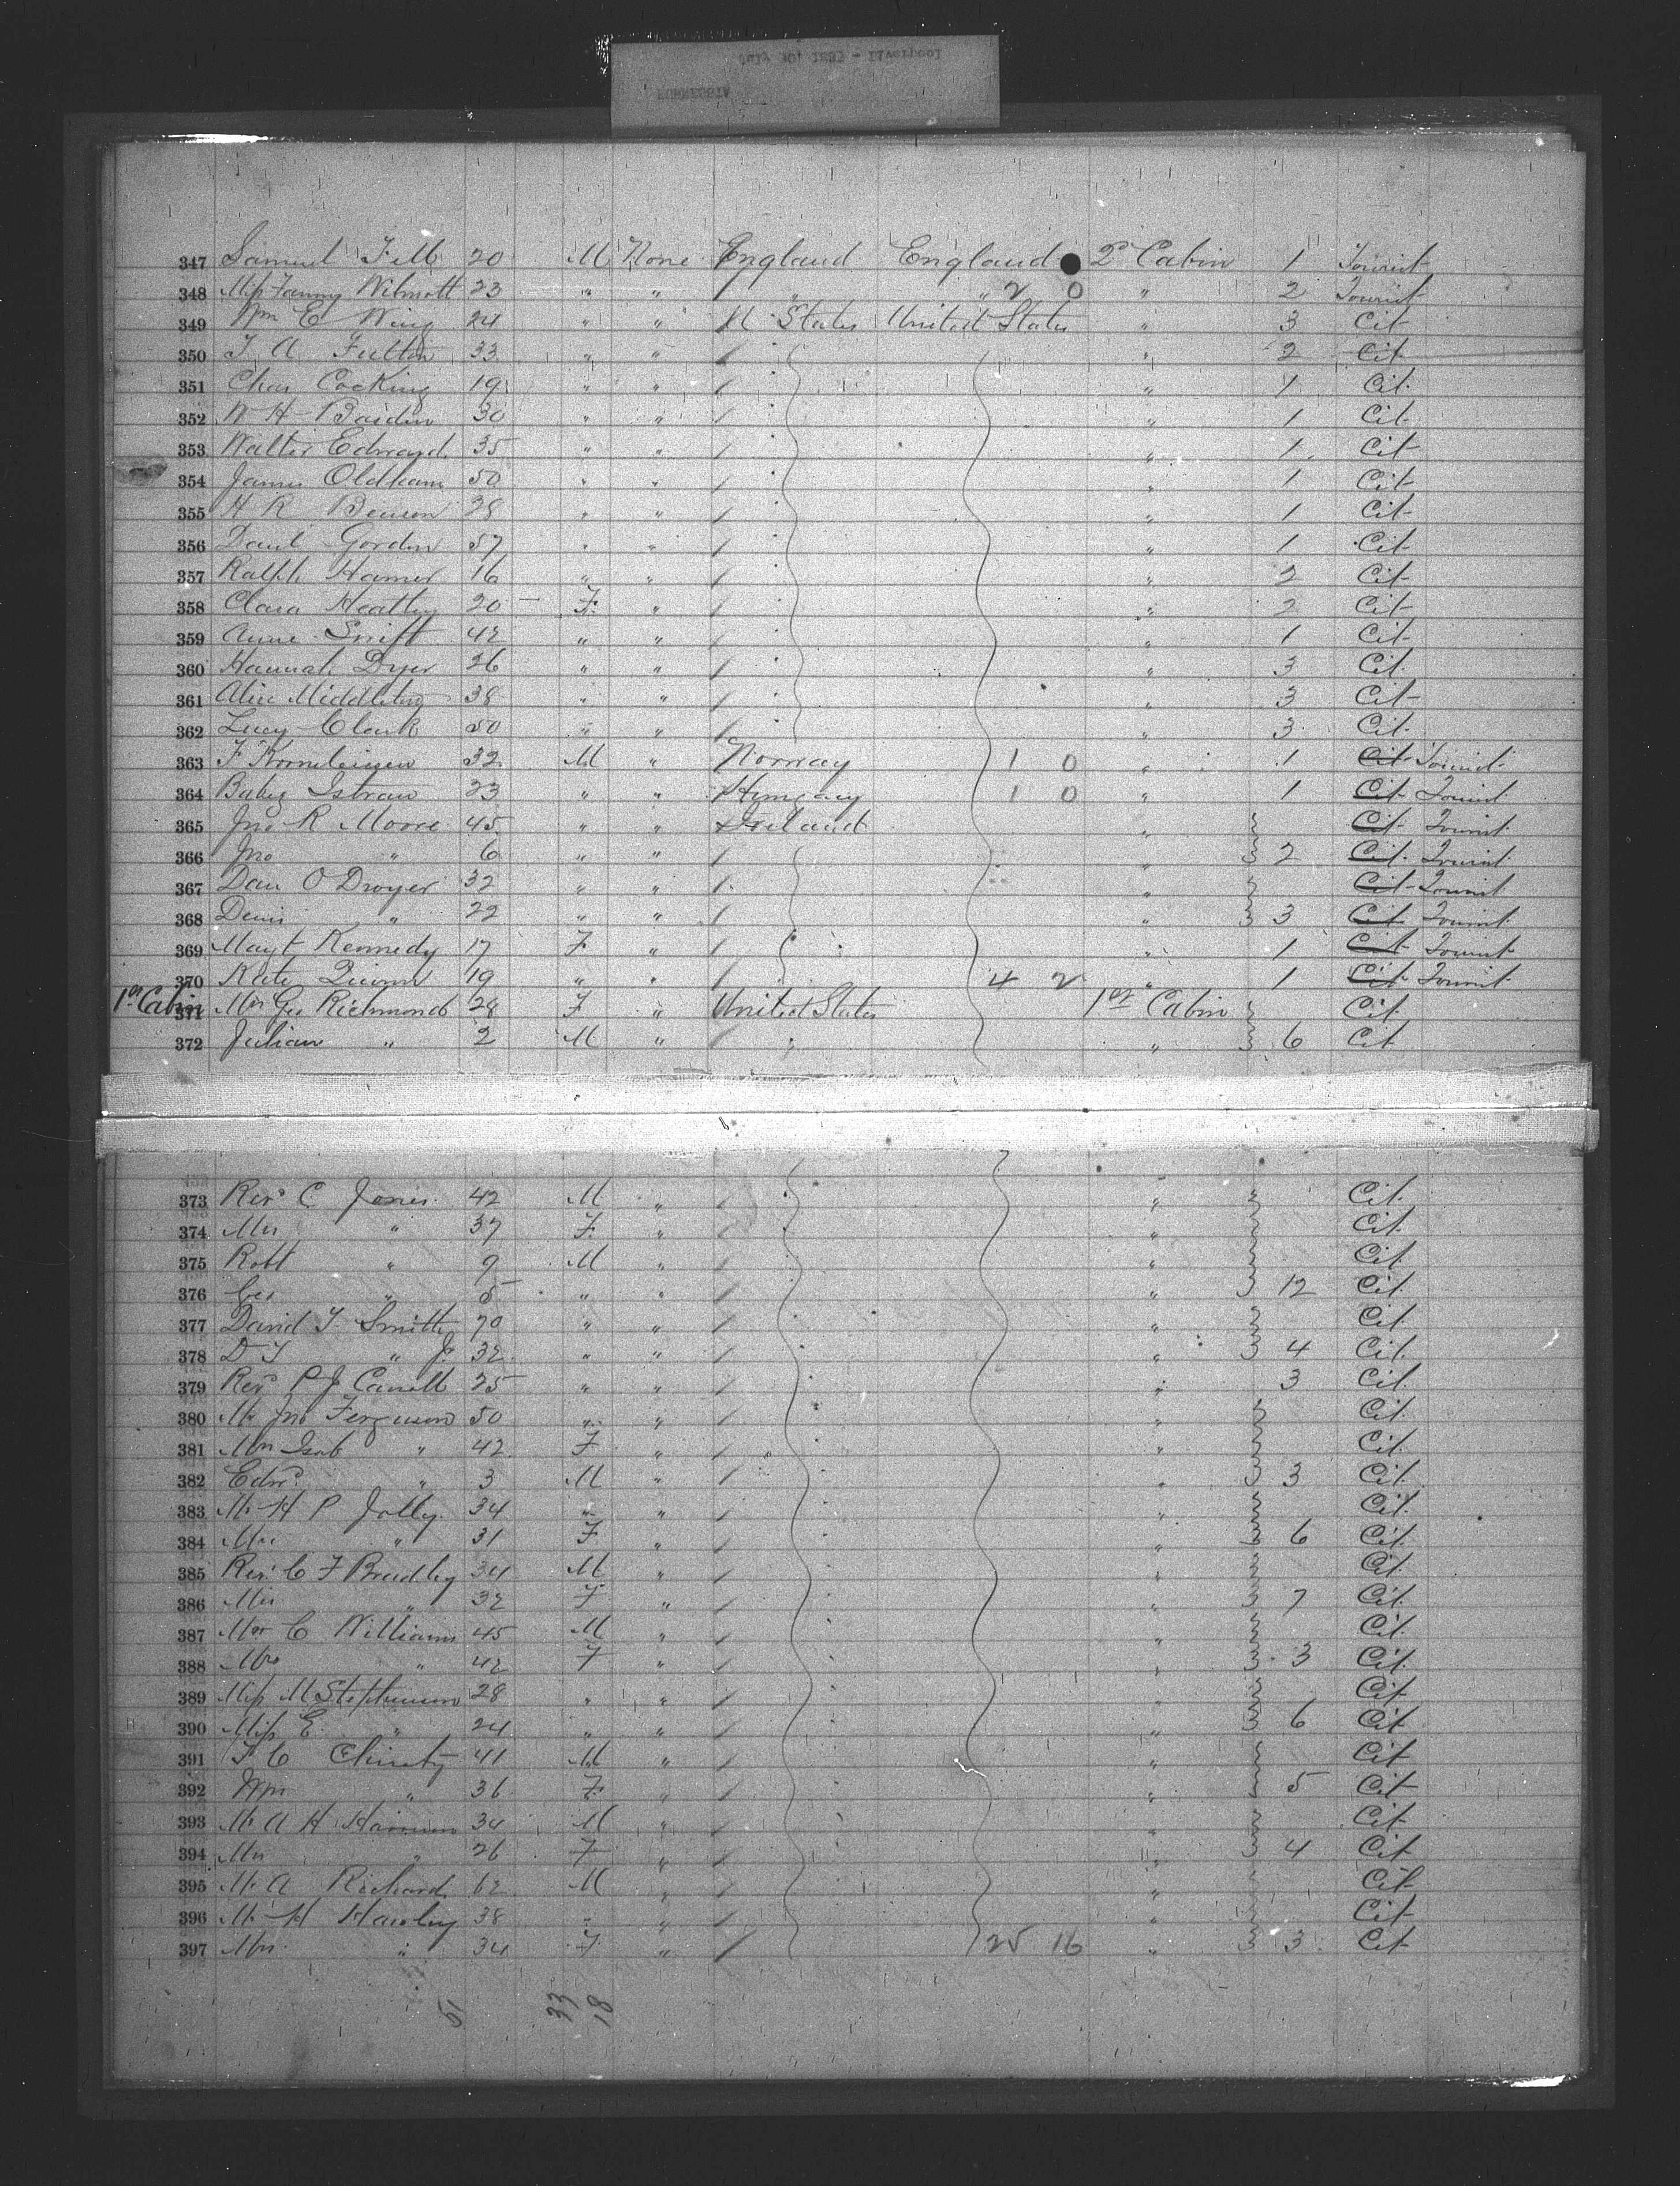 July 30, 1883 - Liverpool
FURNESSIA
347 Samuel Fell 20 M None England England 2" Cabin 1 Tourist
348 Miss Fanny Wilmott 23 " " " " 2 0 " 2 Tourist
349 Wm E Wing 24 " " U States United States " 3 Cit
350 T A Fulton 33 " " " 2 Cit
351 Chas Cocking 19 " " " 1 Cit
352 W H 30 " " " 1 Cit
353 Walter Edward 35 " " " 1 Cit
354 James Oldham 50 " " " 1 Cit
355 H R Benson 28 " " " 1 Cit
356 Danl Gordon 57 " " " 1 Cit
357 Ralph Hamer 16 " " " 2 Cit
358 Clara Heatley 20 F " " 2 Cit
359 Anne Swift 42 " " " 1 Cit
360 Hannah Dyer 26 " " " 3 Cit
361 Alice Middleton 38 " " " 3 Cit
362 Lucy Clark 50 " " " 3 Cit
363 F 32 M " Norway 1 0 " 1 Cit Tourist
364 23 " " Hungary 1 0 " 1 Cit Tourist
365 Jno R Moore 45 " " Ireland " Cit Tourist
366 Jno " 6 " " " 2 Cit Tourist
367 Dan O Dwyer 32 " " " Cit Tourist
368 Denis " 22 " " " 3 Cit Tourist
369 Magt Kennedy 17 F " " 1 Cit Tourist
370 Kate Quinn 19 " " 4 2 " 1 Cit Tourist
1st Cabin 371 Mrs Geo Richmond 28 F " United States 1st Cabin Cit
372 Julian " 2 M " " " 6 Cit
373 Revd C Jones 42 M " " Cit
374 Mrs " 37 F " " Cit
375 Robt " 9 M " " Cit
376 Geo " 5 " " " 12 Cit
377 David T Smith 70 " " " Cit
378 D T " Jr 32 " " " 4 Cit
379 Revd P J 25 " " " 3 Cit
380 Mr Jno Ferguson 50 " " " Cit
381 Mrs Isab " 42 F " " Cit
382 Edwd " 3 M " " 3 Cit
383 Mr H P Jolly 34 " " " Cit
384 Mrs " 31 F " " 6 Cit
385 Rev C F Bradley 34 M " " Cit
386 Mrs " 32 F " " 7 Cit
387 Mr C Williams 45 M " " Cit
388 Mrs " 42 F " " 3 Cit
389 Miss M Stephenson 28 " " " Cit
390 Miss E " 24 " " " 6 Cit
391 C Christy 41 M " " Cit
392 " 36 F " " 5 Cit
393 Mr A H Harrison 34 M " " Cit
394 Mrs " 26 F " " 4 Cit
395 Mr A Richard 62 M " " Cit
396 Mr H Hawley 38 " " " Cit
397 Mrs " 34 F " 25 16 " 3 Cit
51 33 18